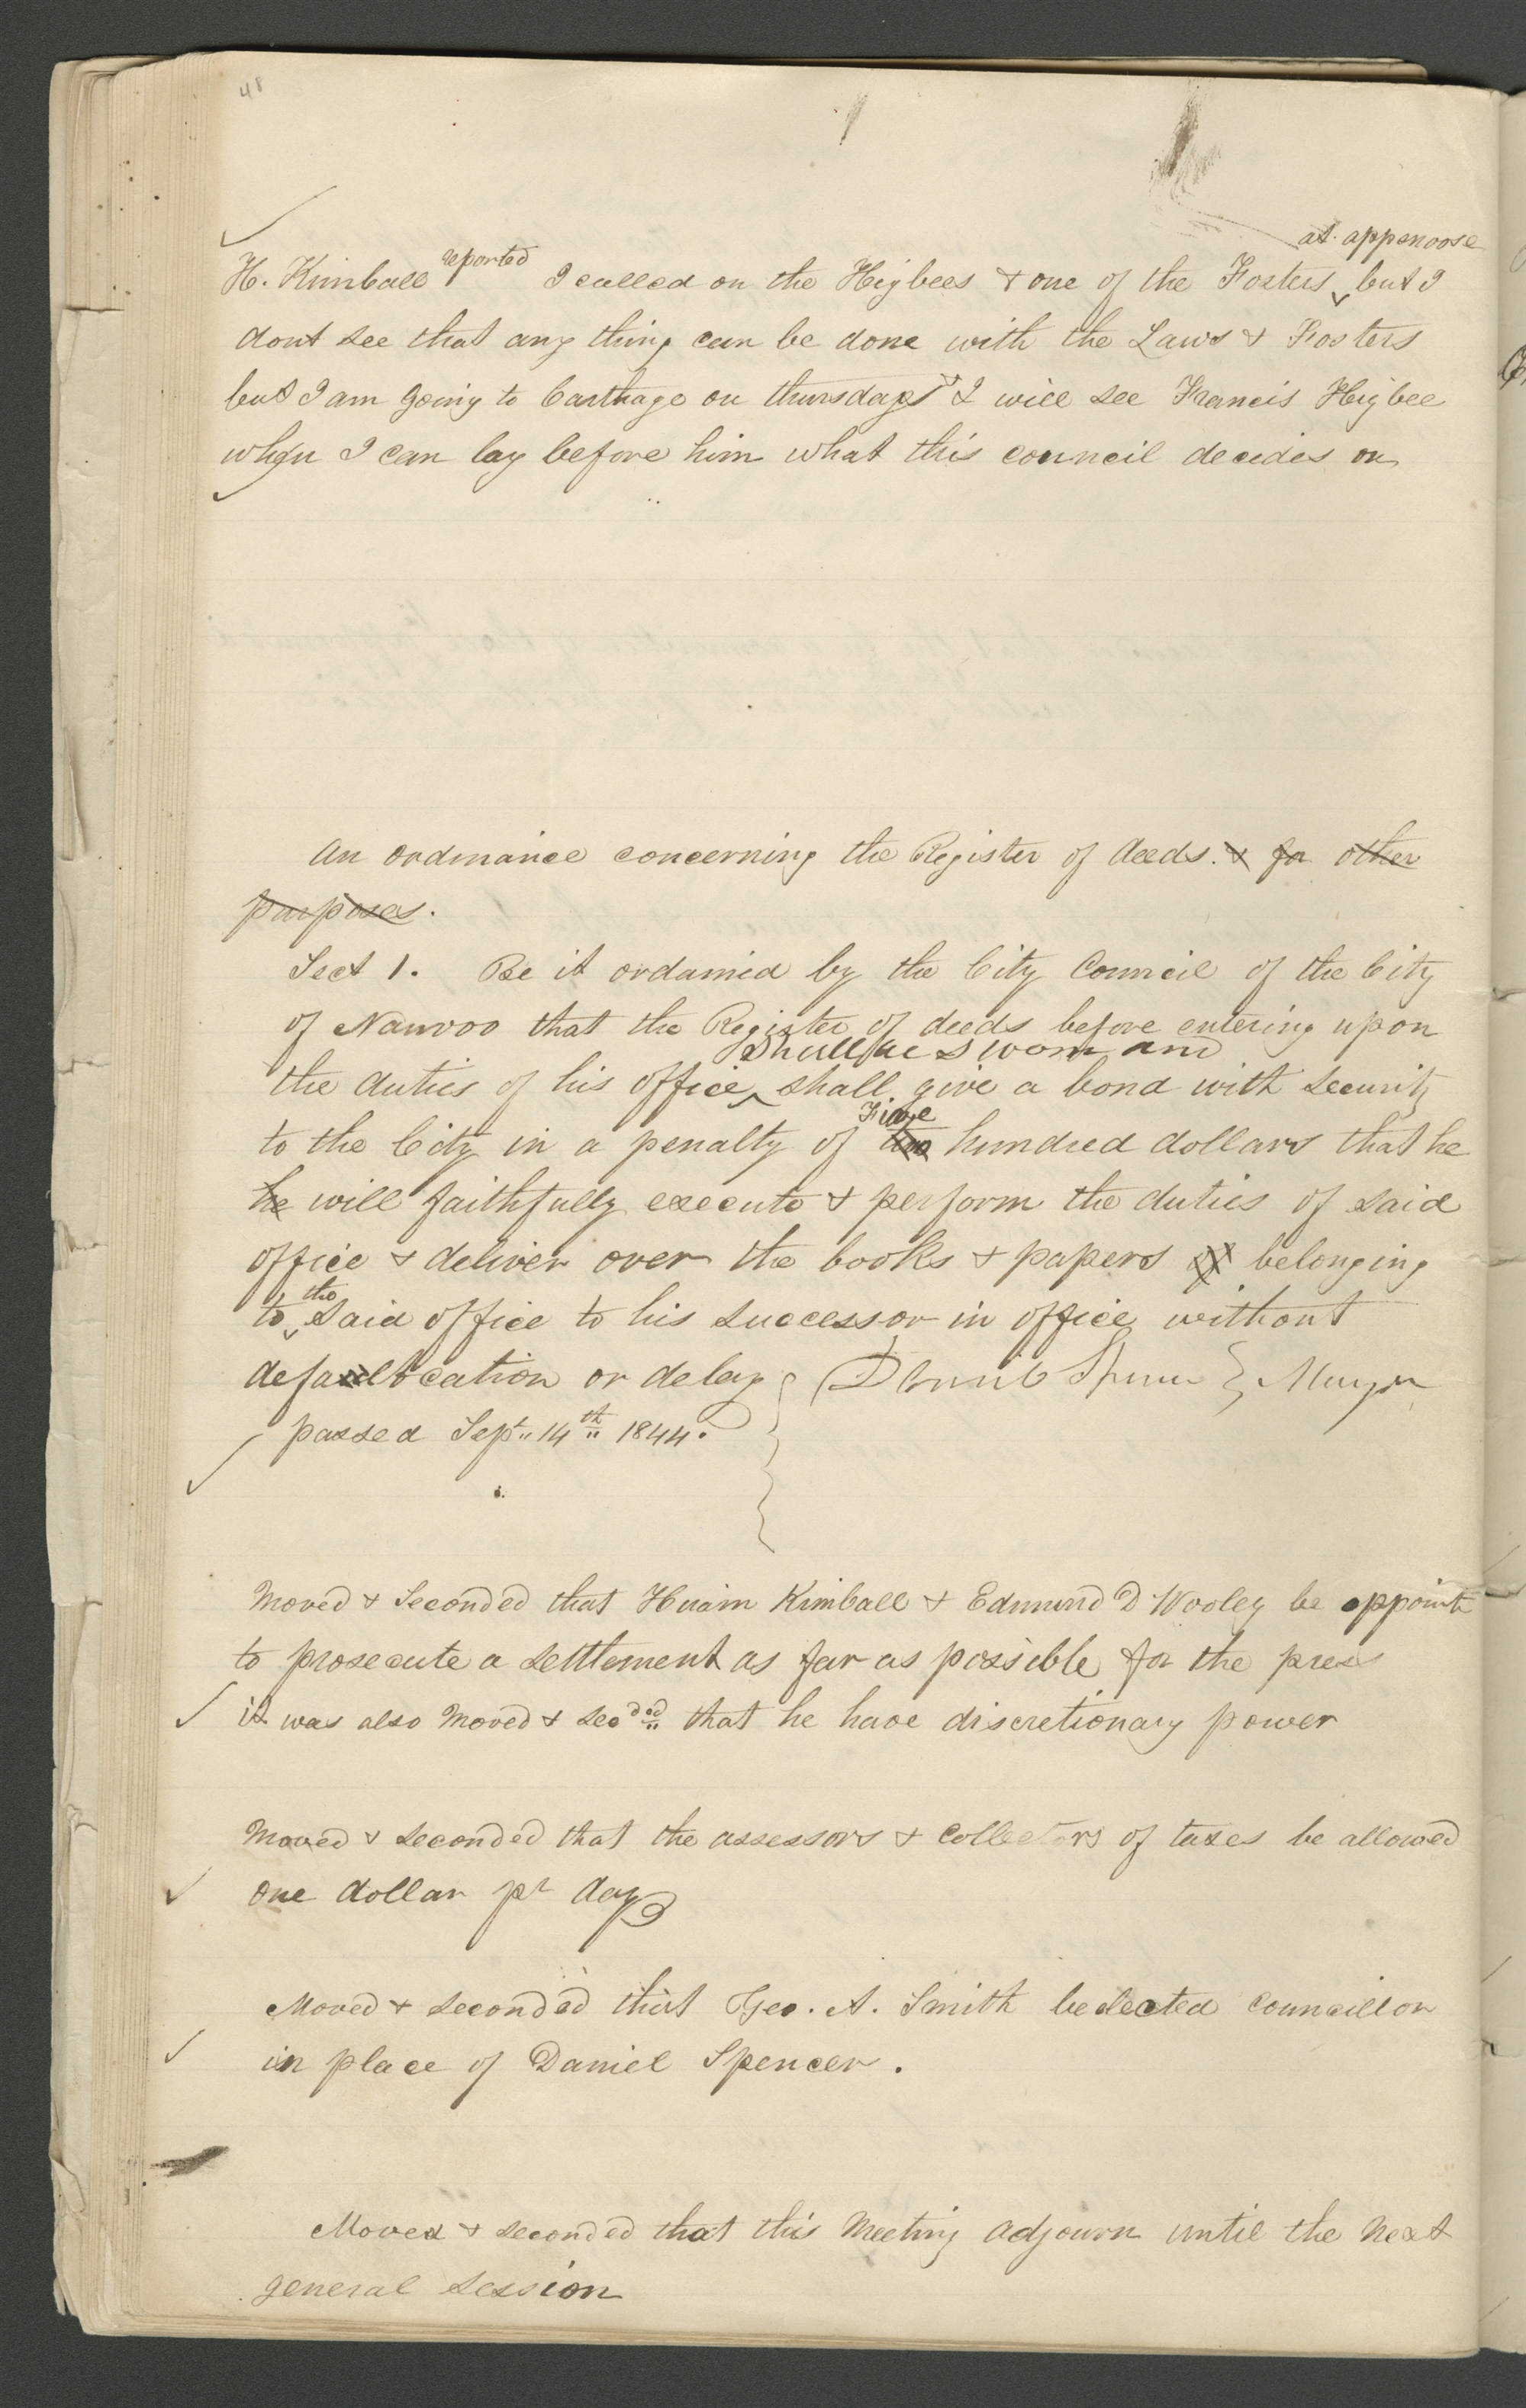 48
H. Kimball reported I called on the Higbees & one of the Fosters at appenoose but I
dont see that any thing can be done with the Laws & Fosters
but I am going to Carthage on thursday & I will see Francis Higbee
when I can lay before him what this council decides on
An ordinance concerning the Register of deeds. & for other
purposes.
Sect 1. Be it ordained by the City Council of the City
of Nauvoo that the Register of deeds before entering upon
the duties of his office, shall be sworn and shall give a bond with security
to the City in a penalty of Five hundred dollars that he
he will faithfully execute & perform the duties of said
office & deliver over the books & papers belonging
to the said office to his successor in office without
defalcation or delay Daniel Spencer Mayor
passed Sept. 14th 1844.
Moved & Seconded that Hiram Kimball & Edmund D Wooley be appointe
to prosecute a settlement as far as possible for the press
it was also moved & secdd that he have discretionary power
Moved & seconded that the assessors & collectors of taxes be allowed
one dollar pr day
Moved & seconded that Geo. A. Smith be elected councillor
in place of Daniel Spencer.
Moved & seconded that this Meeting adjourn until the next
general session